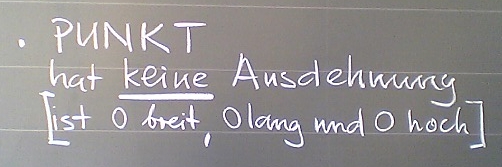 . PUNKT
hat keine Ausdehnung
[ist 0 breit, 0 lang und 0 hoch]